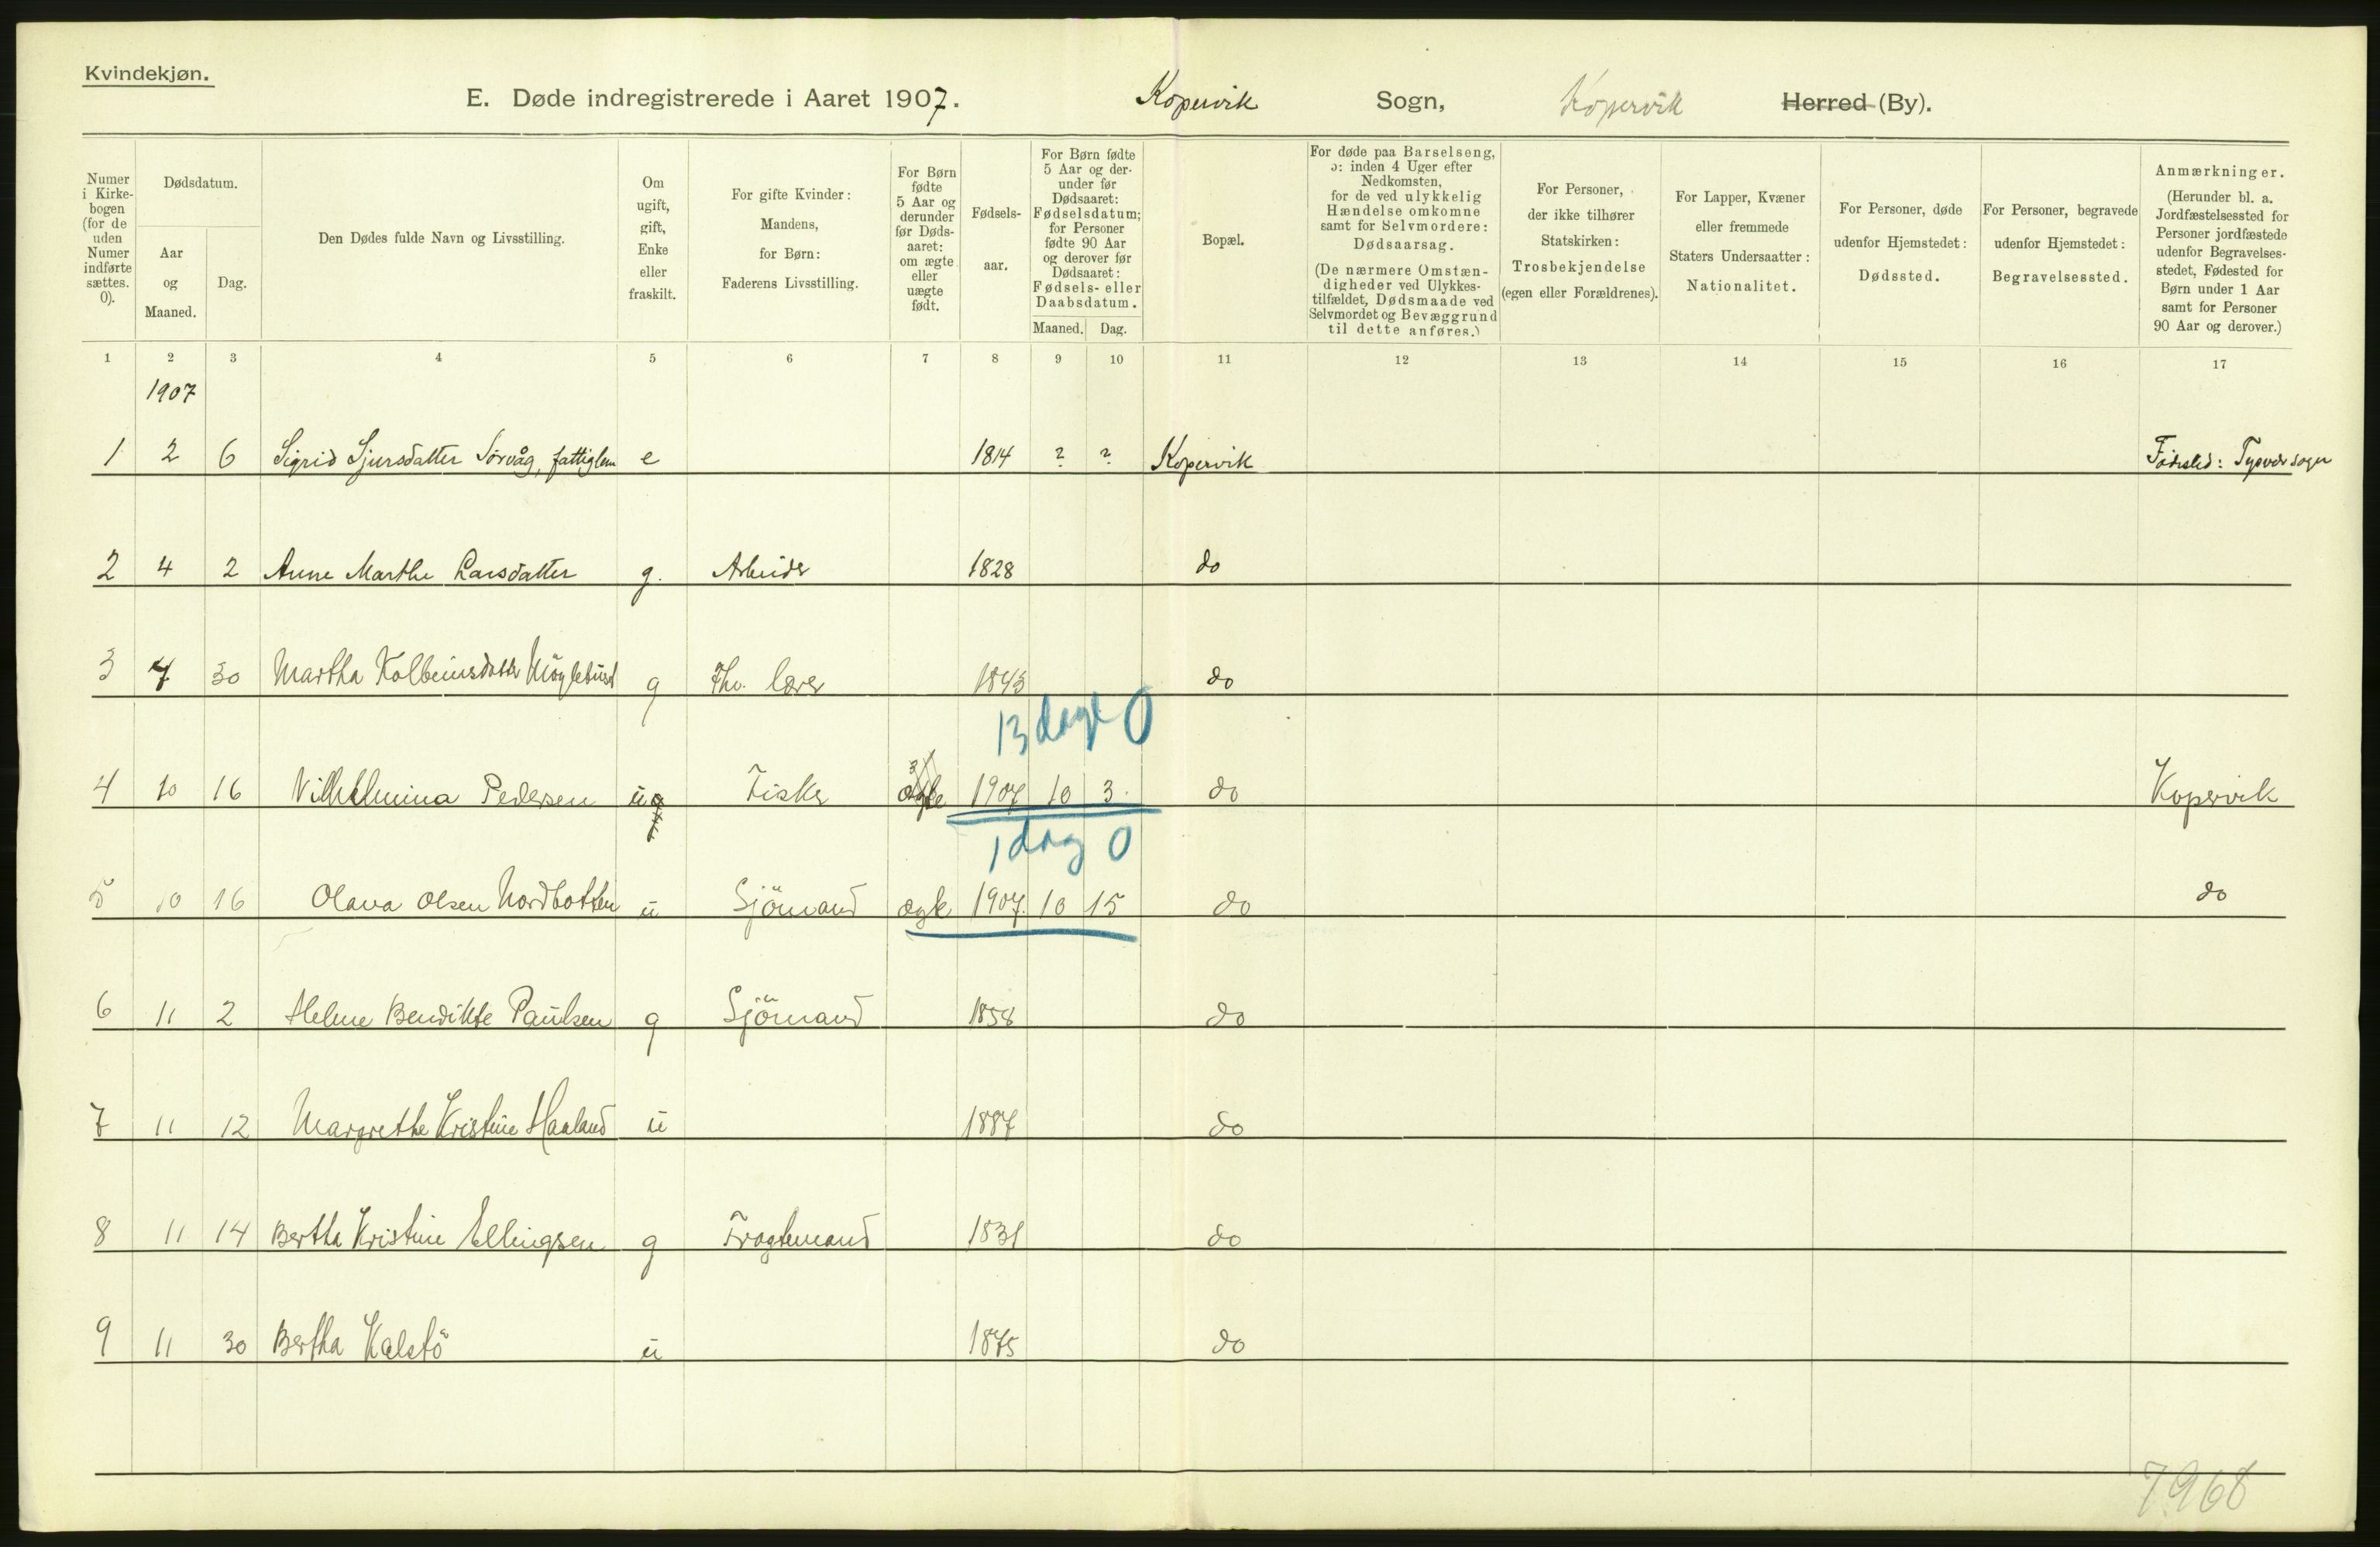 Kvindekjøn.
E. Døde indregistrerede i Aaret 1907. Kopervik Sogn, Kopervik Herred (By).
Numer i Kirke-bogen (for de uden Numer indførte sættes. 0).
Dødsdatum.
Aar og Maaned.
Dag.
Den Dødes fulde Navn og Livsstilling.
Om ugift, gift, Enke eller fraskilt.
For gifte Kvinder: Mandens, for Børn: Faderens Livsstilling.
For Børn fødte 5 Aar og derunder før Døds-aaret: om ægte eller uægte født.
Fødsels-aar.
For Børn fødte 5 Aar og der-under før Dødsaaret: Fødselsdatum; for Personer fødte 90 Aar og derover før Dødsaaret: Fødsels- eller Daabsdatum.
Maaned. Dag.
Bopæl.
For døde paa Barselseng, ɔ: inden 4 Uger efter Nedkomsten, for de ved ulykkelig Hændelse omkomne samt for Selvmordere: Dødsaarsag.
(De nærmere Omstæn-digheder ved Ulykkes-tilfældet, Dødsmaade ved Selvmordet og Bevæggrund til dette anføres.)
For Personer, der ikke tilhører Statskirken: Trosbekjendelse (egen eller Forældrenes).
For Lapper, Kvæner eller fremmede Staters Undersaatter: Nationalitet.
For Personer, døde udenfor Hjemstedet: Dødssted.
For Personer, begravede udenfor Hjemstedet: Begravelsessted.
Anmærkninger.
(Herunder bl. a. Jordfæstelsessted for Personer jordfæstede udenfor Begravelses-stedet, Fødested for Børn under 1 Aar samt for Personer 90 Aar og derover.)
1 2 3 4 5 6 7 8 9 10 11 12 13 14 15 16 17
1907
1 2 6 Sigrid Sjursdatter Sørvåg, fattiglem e 1814 ? ? Kopervik Fødested: Tysvær sogn
2 4 2 Anne Marthe Larsdatter g. Arbeider 1828 do
3 7 30 Martha Kolbeinsdatter g Fhv. lærer 1843 do
13 dage 0
4 10 16 Vilhelmina Pedersen u Fisker ægte 1907 10 3. do Kopervik
1 dag 0
5 10 16 Olava Olsen Nordbotten u Sjömand ægte 1907. 10 15 do do
6 11 2 Helene Bendikte Paulsen g Sjömand 1858 do
7 11 12 Margrethe Kristine Haaland u 1887 do
8 11 14 Bertha Kristine Ellingsen g Fragtemand 1831 do
9 11 30 Bertha Kalstö u 1875 do
7968